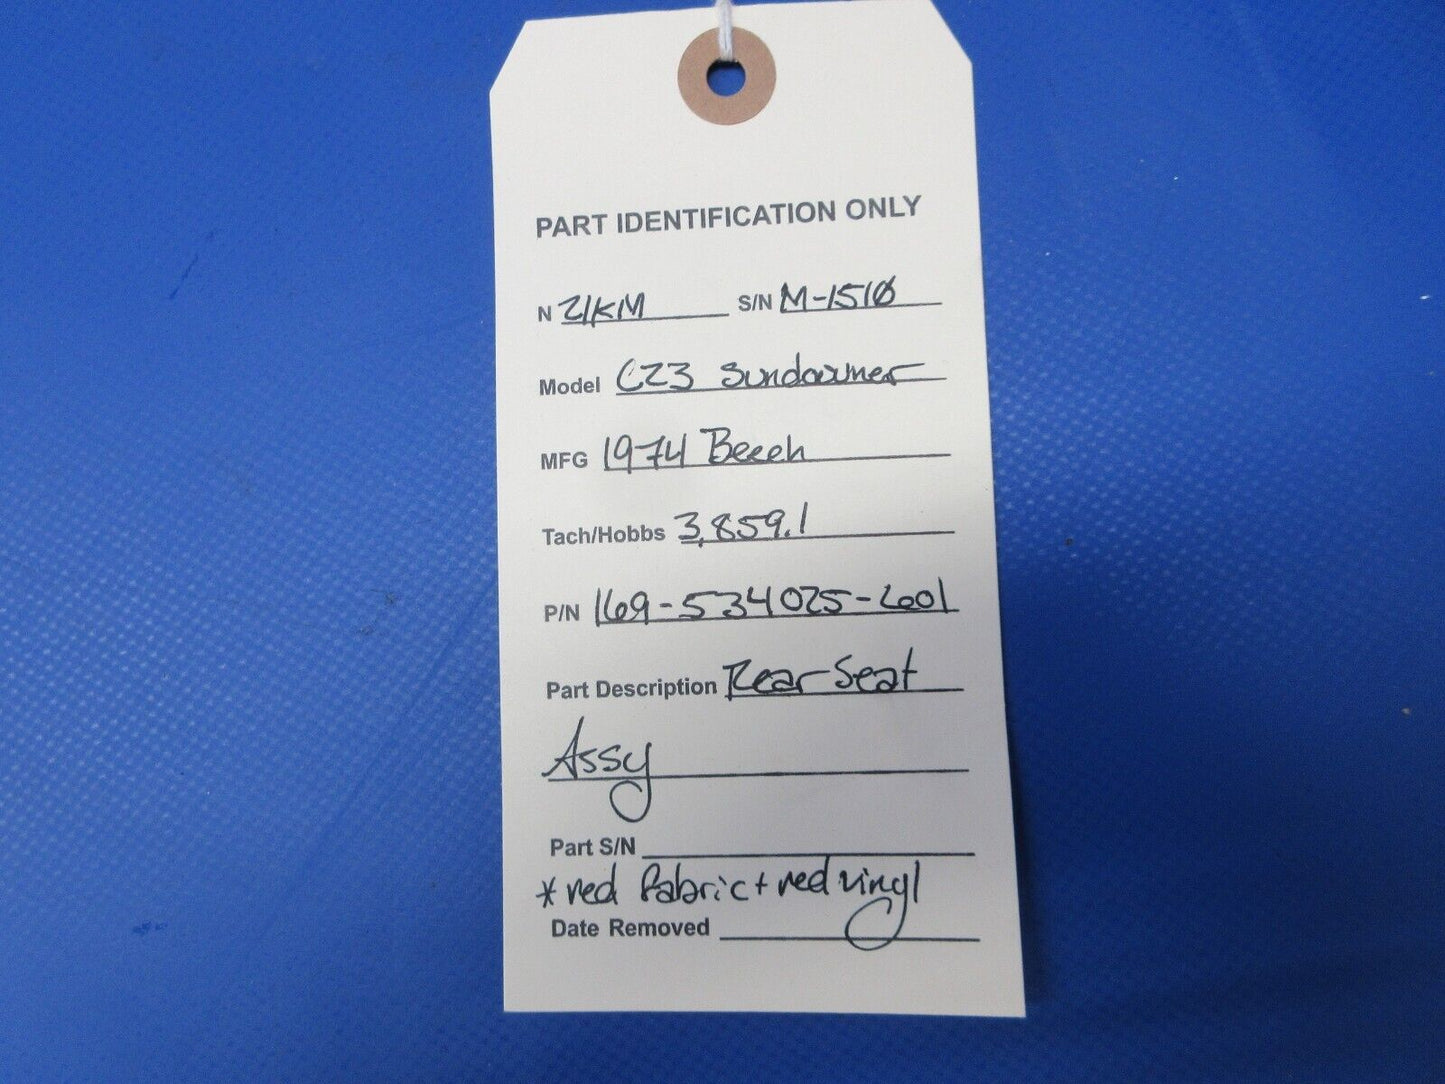 PART IDENTIFICATION ONLY
N 21KM S/N M-1510
Model C23 Sundowner
MFG 1974 Beech
Tach/Hobbs 3,859.1
P/N 169-534025-601
Part Description Rear Seat
Assy
Part S/N
* red fabric + red vinyl
Date Removed